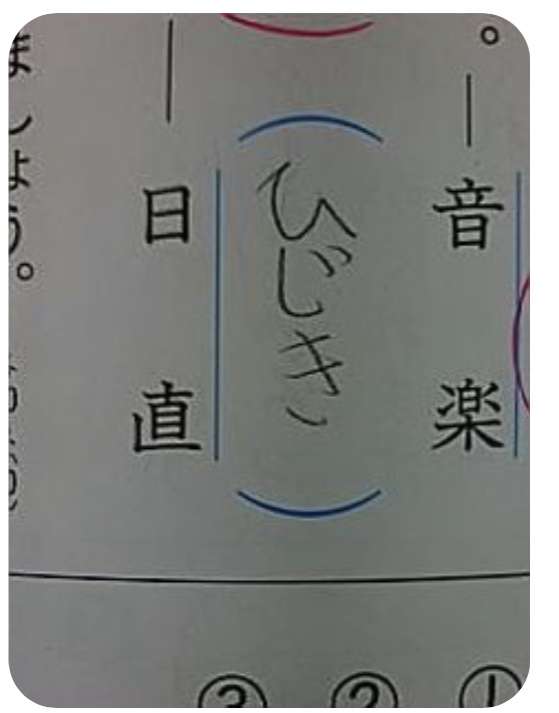 。
音楽
ひじき
日直
ましょう。
① ② ③